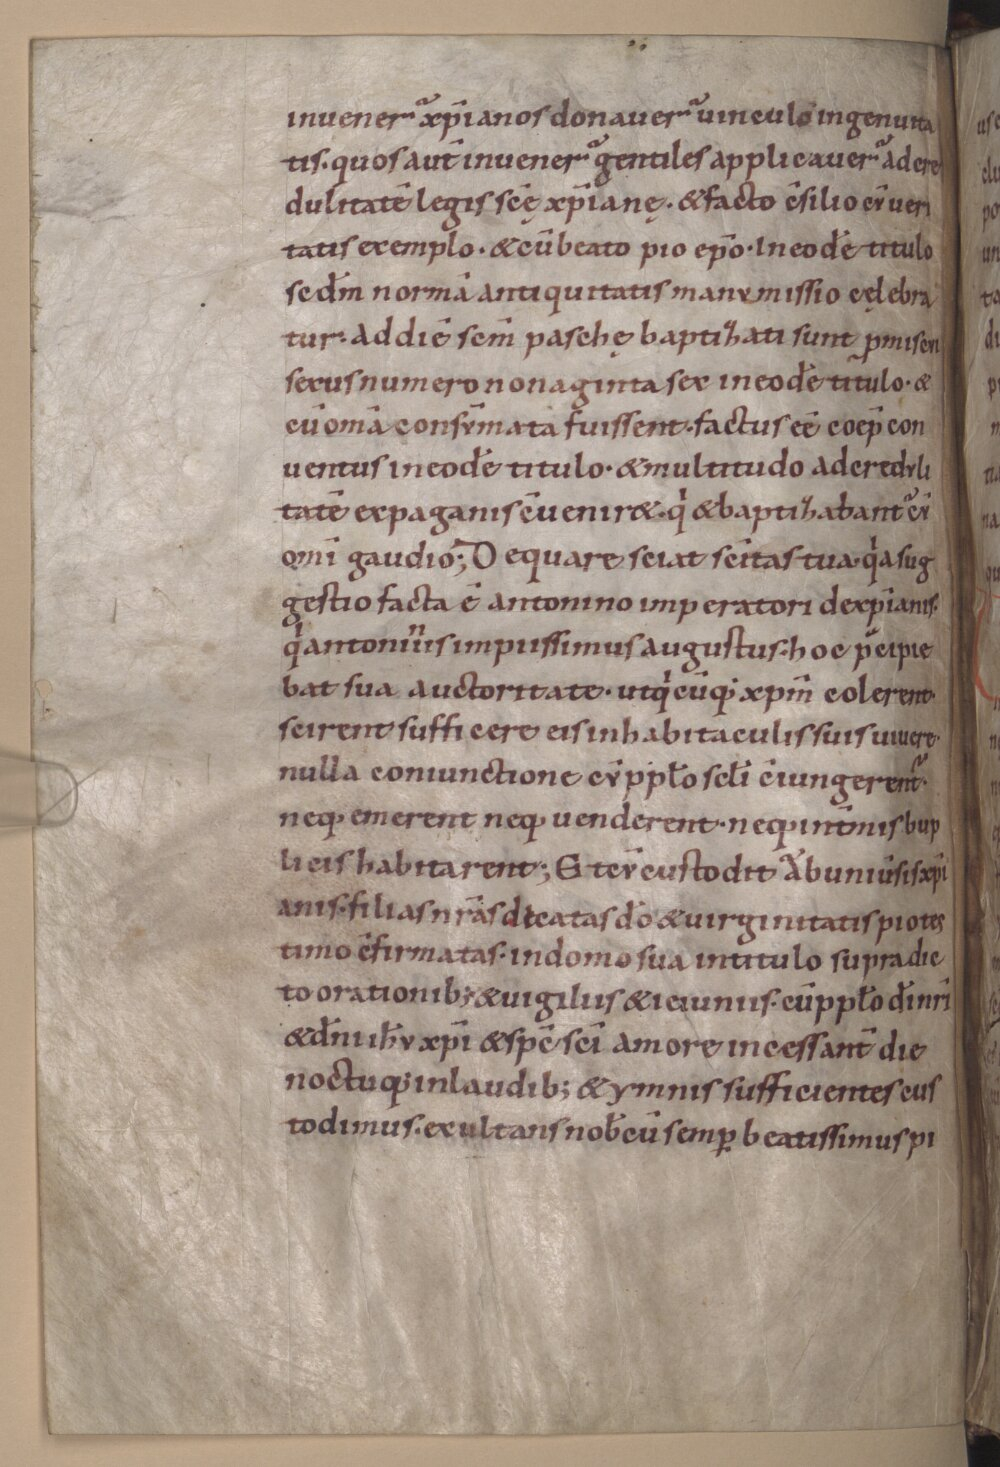 inuener᷑ xp̄ianos donauer᷑ uinculo ingenuita
tis. quos aut̄ inuener᷑ gentiles applicauer᷑ ad cre
dulitatē legis scę̄ xp̄ianę. & facto c̄silio cū ueri
tatis exemplo. & cū beato pio ep̄o. In eodē titulo
scd̄m normā antiquitatis manumissio cęlebra
tur. Ad diē scm̄ paschę baptizati sunt pmiscui
sexus numero nonaginta sex in eodē titulo. &
cū om̄a consūmata fuissent. factus ē̄ coep̄ con
uentus in eodē titulo. & multitudo ad creduli
tatē ex paganis c̄uenir&. qͥ & baptizabant᷑ cū
om̄i gaudio; De quare sciat sc̄itas tua. qͥa sug
gestio facta ē antonino imperatori de xp̄ianis.
qͥ antoninus impiissimus augustus. hoc p̄cipie
bat sua auctoritate. ut qͥcūq; xp̄m colerent.
scirent sufficere eis in habitaculis suis uiuere.
nulla coniunctione cū ppl̄o scl̄i c̄iungerent᷑.
neq; emerent neq; uenderent. neq; int̄mis bup
licis habitarent; S tcū custodit ab uniūsis xp̄i
anis. filias nr̄as dicatas d̄o & uirginitatis pio tes
timo c̄firmatas. in domo sua in titulo supradic
to orationib; & uigiliis & ieiuniis. cū ppl̄o d̄i nr̄i
& dn̄i ih̄u xp̄i & sp̄c sc̄i amore incessant̄ die
noctuq; in laudib; & ymnis sufficientes cus
todimus. exultans nob̄cū semp̱ beatissimus pi